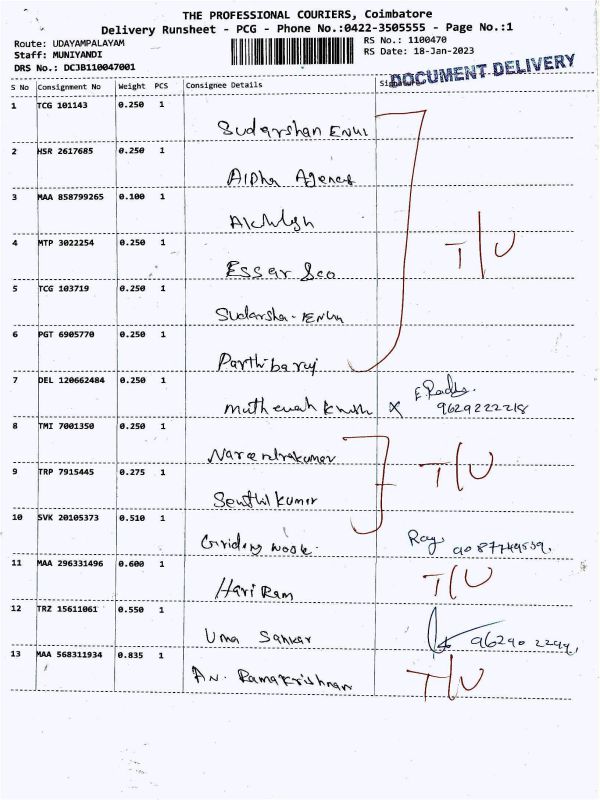 THE PROFESSIONAL COURIERS, Coimbatore
Delivery Runsheet - PCG - Phone No.:0422-3505555 - Page No.:1
Route: UDAYAMPALAYAM
Staff: MUNIYANDI
DRS No.: DCJB110047001
RS No.: 1100470
RS Date: 18-Jan-2023
DOCUMENT DELIVERY
S No Consignment No Weight PCS Consignee Details
1 TCG 101143 0.250 1
Sudarshan
2 HSR 2617685 0.250 1
Alpha Agency
3 MAA 858799265 0.100 1
4 MTP 3022254 0.250 1
T/U
Essar
5 TCG 103719 0.250 1
Sudarsha
6 PGT 6905770 0.250 1
Parthibaraj
7 DEL 120662484 0.250 1
9629222218
8 TMI 7001350 0.250 1
Narendrakumar
9 TRP 7915445 0.275 1
T/U
Senthilkumar
10 SVK 20105373 0.510 1
Ray
11 MAA 296331496 0.600 1
Hari Ram T/U
12 TRZ 15611061 0.550 1
Uma Sankar
13 MAA 568311934 0.835 1
AN. Ramakrishnan T/U